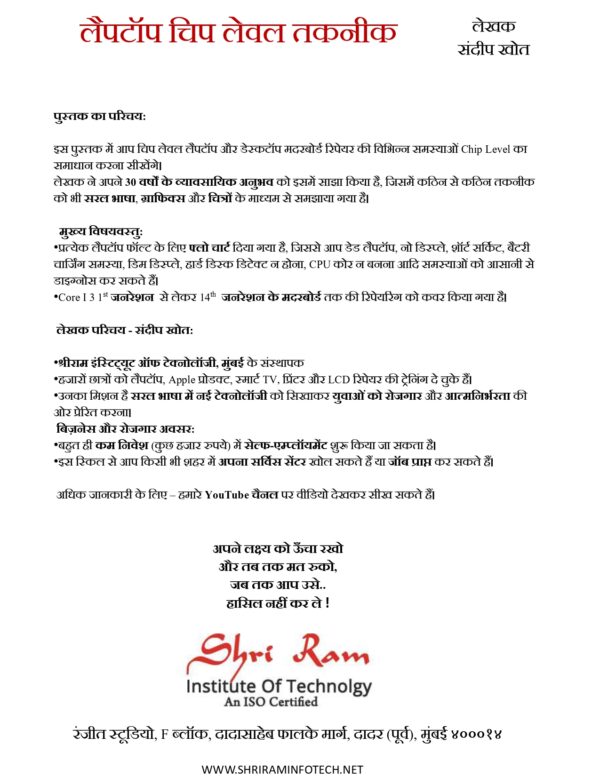 लैपटॉप चिप लेवल तकनीक
लेखक
संदीप खोत
पुस्तक का परिचय:
इस पुस्तक में आप चिप लेवल लैपटॉप और डेस्कटॉप मदरबोर्ड रिपेयर की विभिन्न समस्याओं Chip Level का
समाधान करना सीखेंगे।
लेखक ने अपने 30 वर्षों के व्यावसायिक अनुभव को इसमें साझा किया है, जिसमें कठिन से कठिन तकनीक
को भी सरल भाषा, ग्राफिक्स और चित्रों के माध्यम से समझाया गया है।
मुख्य विषयवस्तु:
•प्रत्येक लैपटॉप फॉल्ट के लिए फ्लो चार्ट दिया गया है, जिससे आप डेड लैपटॉप, नो डिस्प्ले, शॉर्ट सर्किट, बैटरी
चार्जिंग समस्या, डिम डिस्प्ले, हार्ड डिस्क डिटेक्ट न होना, CPU कोर न बनना आदि समस्याओं को आसानी से
डाइग्नोस कर सकते हैं।
•Core I 3 1st जनरेशन से लेकर 14th जनरेशन के मदरबोर्ड तक की रिपेयरिंग को कवर किया गया है।
लेखक परिचय - संदीप खोत:
•श्रीराम इंस्टिट्यूट ऑफ टेक्नोलॉजी, मुंबई के संस्थापक
•हजारों छात्रों को लैपटॉप, Apple प्रोडक्ट, स्मार्ट TV, प्रिंटर और LCD रिपेयर की ट्रेनिंग दे चुके हैं।
•उनका मिशन है सरल भाषा में नई टेक्नोलॉजी को सिखाकर युवाओं को रोजगार और आत्मनिर्भरता की
ओर प्रेरित करना।
बिज़नेस और रोजगार अवसर:
•बहुत ही कम निवेश (कुछ हजार रुपये) में सेल्फ-एम्प्लॉयमेंट शुरू किया जा सकता है।
•इस स्किल से आप किसी भी शहर में अपना सर्विस सेंटर खोल सकते हैं या जॉब प्राप्त कर सकते हैं।
अधिक जानकारी के लिए – हमारे YouTube चैनल पर वीडियो देखकर सीख सकते हैं।
अपने लक्ष्य को ऊँचा रखो
और तब तक मत रुको,
जब तक आप उसे..
हासिल नहीं कर ले !
Shri Ram
Institute Of Technolgy
An ISO Certified
रंजीत स्टूडियो, F ब्लॉक, दादासाहेब फालके मार्ग, दादर (पूर्व), मुंबई ४०००१४
WWW.SHRIRAMINFOTECH.NET